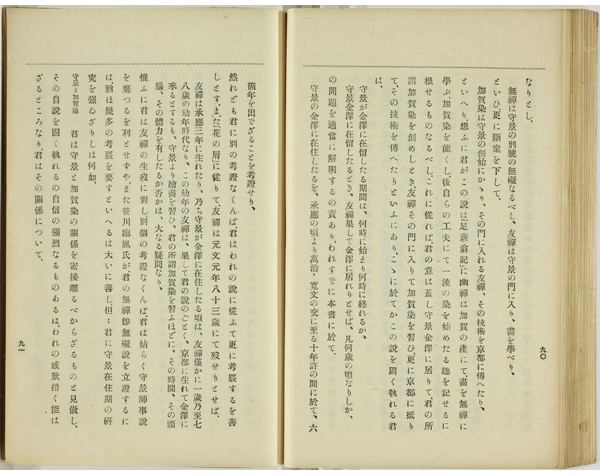 なりとし、
無禪は守景の別號の無礙なるべし、友禪は守景の門に入り、畫を學べり、
といひ更に斷案を下して、
加賀染は守景の創始にかゝり、その門に入れる友禪、その技術を京都に傳へたり、
といへり、想ふに君がこの說は「足薪翁記」に幽禪は加賀の產にて、畫を無禪に
學ぶ加賀染を能くし、後自らの工夫にて一流の染を始めたる趣を記せるに
根せるものなるべし、これに從れば、君の意は蓋し守景金澤に居りて君の所
謂加賀染を創めしとき、友禪その門に入りて加賀染を習ひ、更に京都に抵り
てその技術を傳へたりといふにあり、こゝに於てかこの說を固く執れる君
は、
守景が金澤に在留したる期間は、何時に始まり何時に終れるか、
守景金澤に在留したるとき、友禪果して金澤に居れりとせば、凡何歲の頃なりしか、
の問題を適當に解明するの責あり、われすでに本書に於て、
守景の金澤に在住したるを、承應の頃より萬治・寬文の交に至る十年許りの間に於て、六
九〇
箇年を出でざることを考證せり、
然れども君に別の考證なくんば君はわれの說に從ふて更に考覈するを善
しとす、また「花の層」に從りて、友禪は元文元年八十三歲にて歿せりとせば、
友禪は承應三年に生れたり、乃ち守景が金澤に在住したる頃は、友禪僅かに一歲乃至七
八歲の幼年時代なり、この幼年の友禪は、果して君の說のごとく、京都に生れて金澤に
來るとするも、守景より繪畫を習ひ、君の所謂加賀染を習ふほどに、その時間、その頭
腦、その體力を有したるか否かは、大なる疑問なり、
惟ふに君は友禪の生歿に對し別個の考證なくんば君は姑らく守景師事說
を棄つるを利とせずや、また笹川臨風氏が、君の無禪卽無礙說を立證するに
は、猶ほ幾多の考覈を要すといへるは大いに善し、但、君に守景在住期の研
究を强ゐざりしは何如、
守景と加賀染 君は守景と加賀染の關係を密接離るべからざるものと見做し、
その自說を固く執れるの自信の强烈なるものあるは、われの感歎措く能は
ざるところなり、君はその關係について、
九一